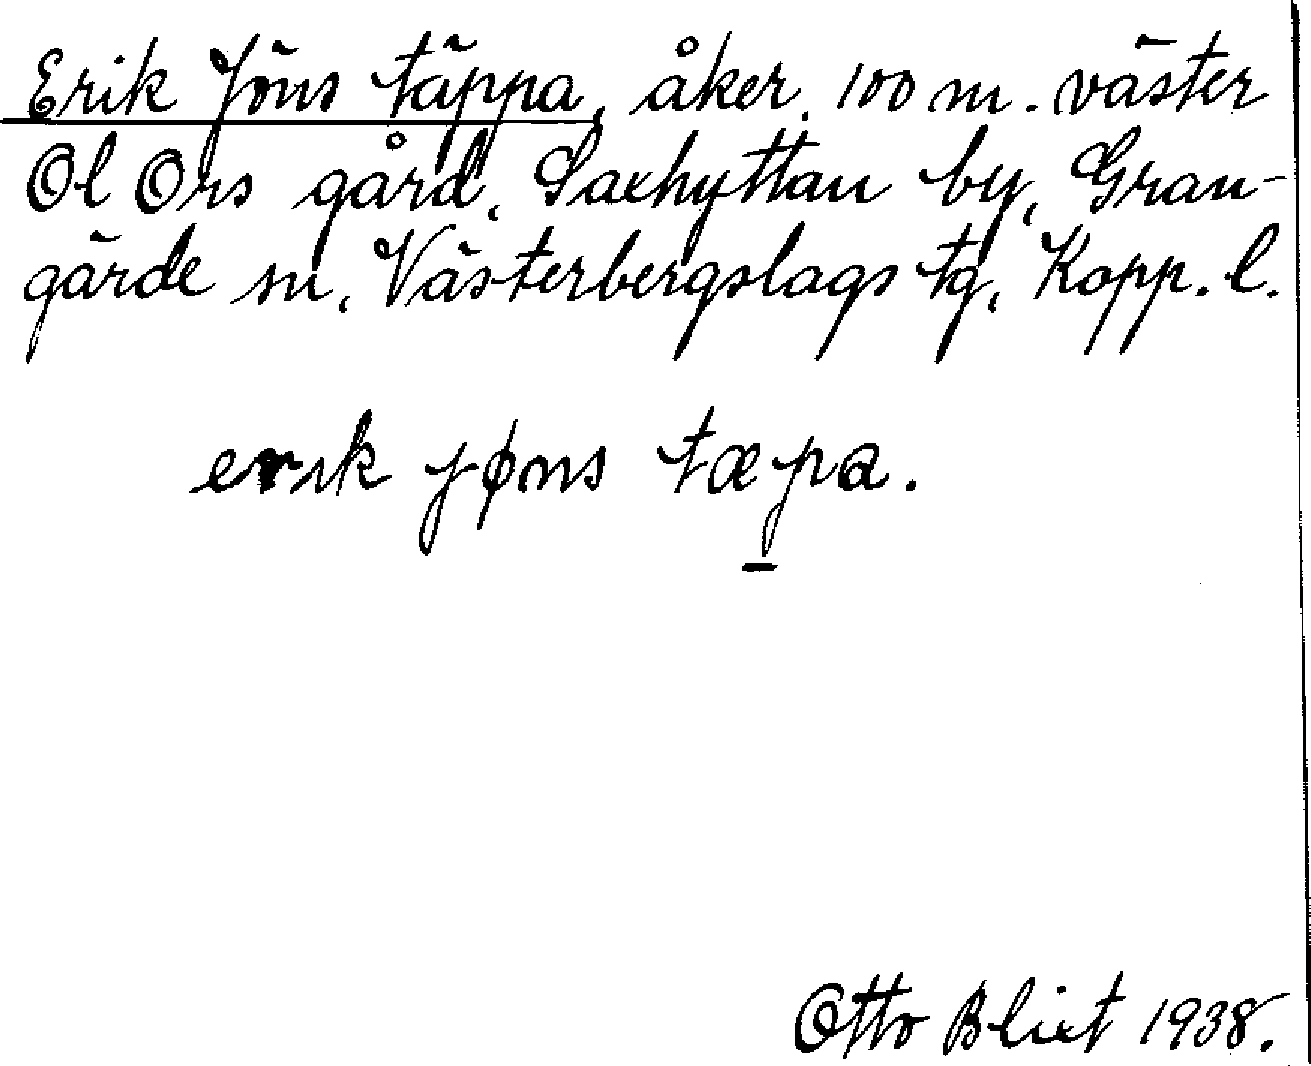 Erik Jöns täppa, åker, 100 m. väster
Ol Ors gård, Saxhyttan by, Gran-
gärde sn, Västerbergslags tg, Kopp. l.
erik jøns tæpa.
Otto Blixt 1938.